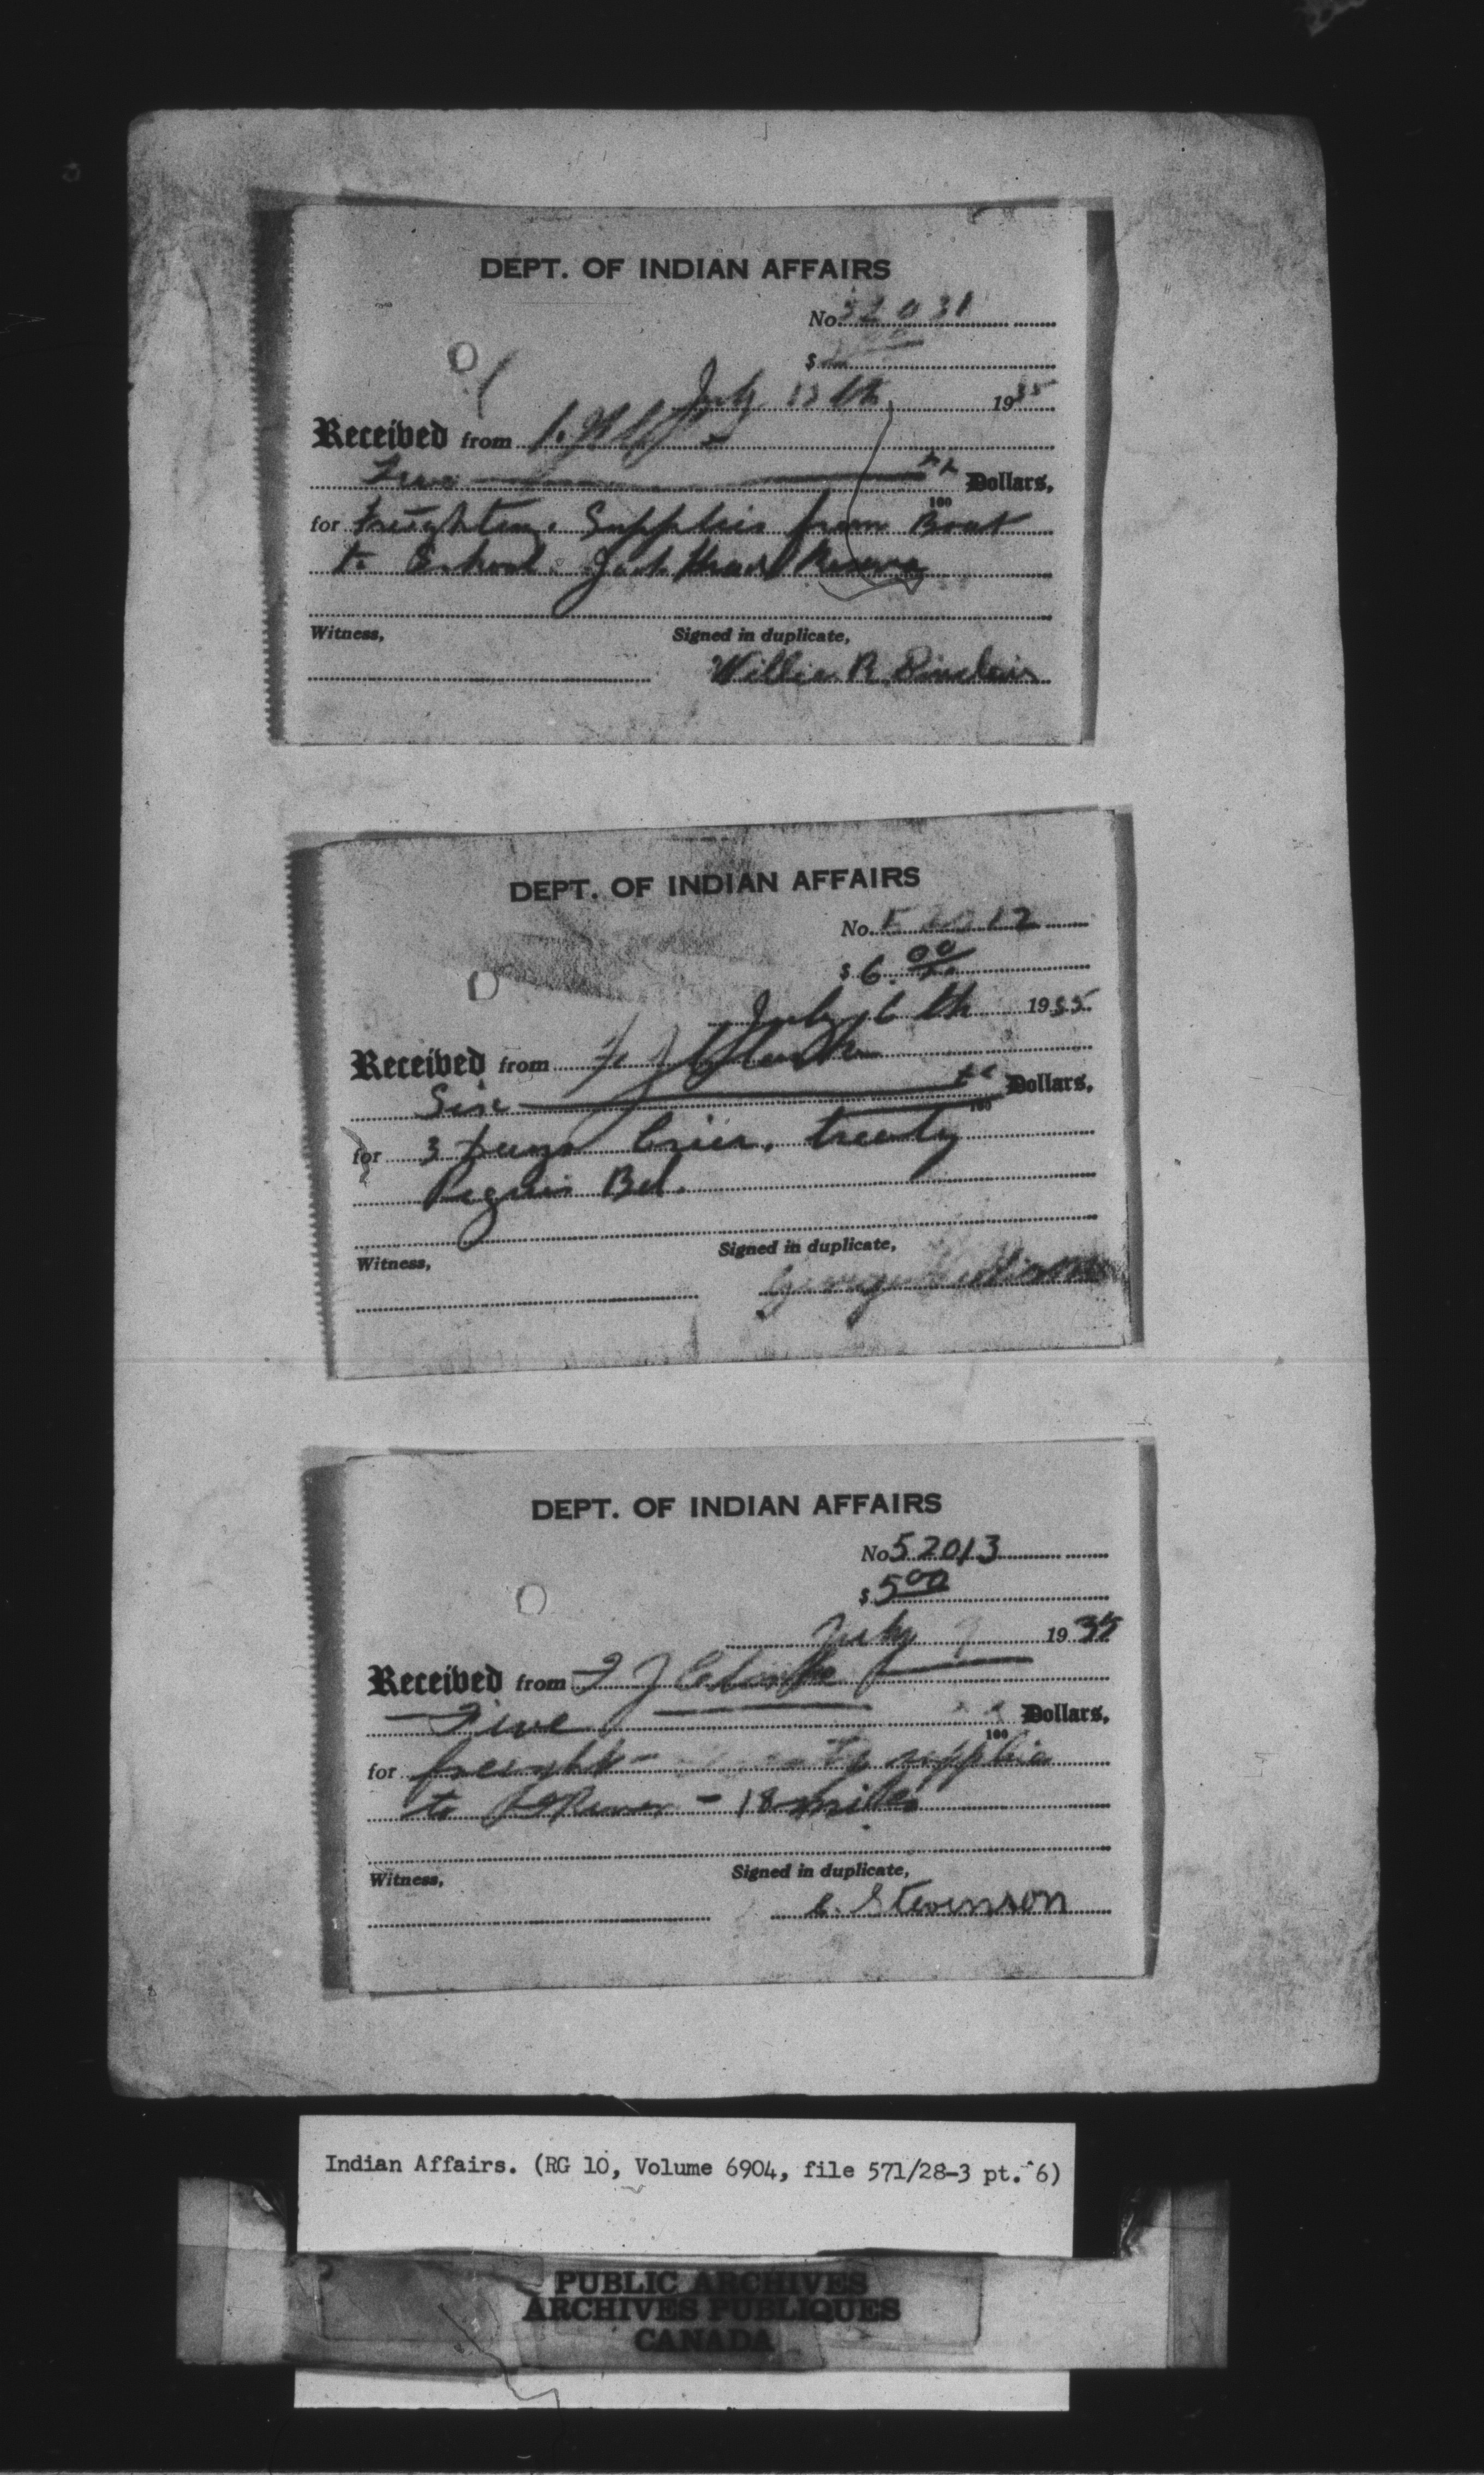 DEPT. OF INDIAN AFFAIRS
No. 52031
$
July 13th 1935
Received from
Dollars,
100
for Freighting Supplies from Boat
to School. Jack Head Reserve
Witness, Signed in duplicate,
Willie R. Sinclair
DEPT. OF INDIAN AFFAIRS
No. 12
$ 6.00
July 6th 1935
Received from F. J. Clarke
Six Dollars,
100
for 3 Days Crier, treaty
Peguis Bd.
Witness, Signed in duplicate,
George
DEPT. OF INDIAN AFFAIRS
No 52013
$ 5 00
July 9 1935
Received from F J Clarke
Five Dollars,
100
for freight - supplies
to River - 18 miles
Witness, Signed in duplicate,
C. Stevenson
Indian Affairs. (RG 10, Volume 6904, file 571/28-3 pt. 6)
PUBLIC ARCHIVES
ARCHIVES PUBLIQUES
CANADA